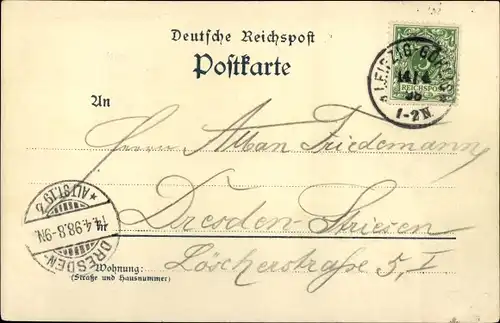 Deutsche Reichspost
Postkarte
REICHSPOST
LEIPZIG-GOHLIS
14/4
98
1-2N.
An
Herrn Alban Friedemann
ALTST.19.b
14.4.98.8-9N.
DRESDEN-
in
Dresden-Striesen
Wohnung:
(Straße und Hausnummer)
Löscherstraße 5, I